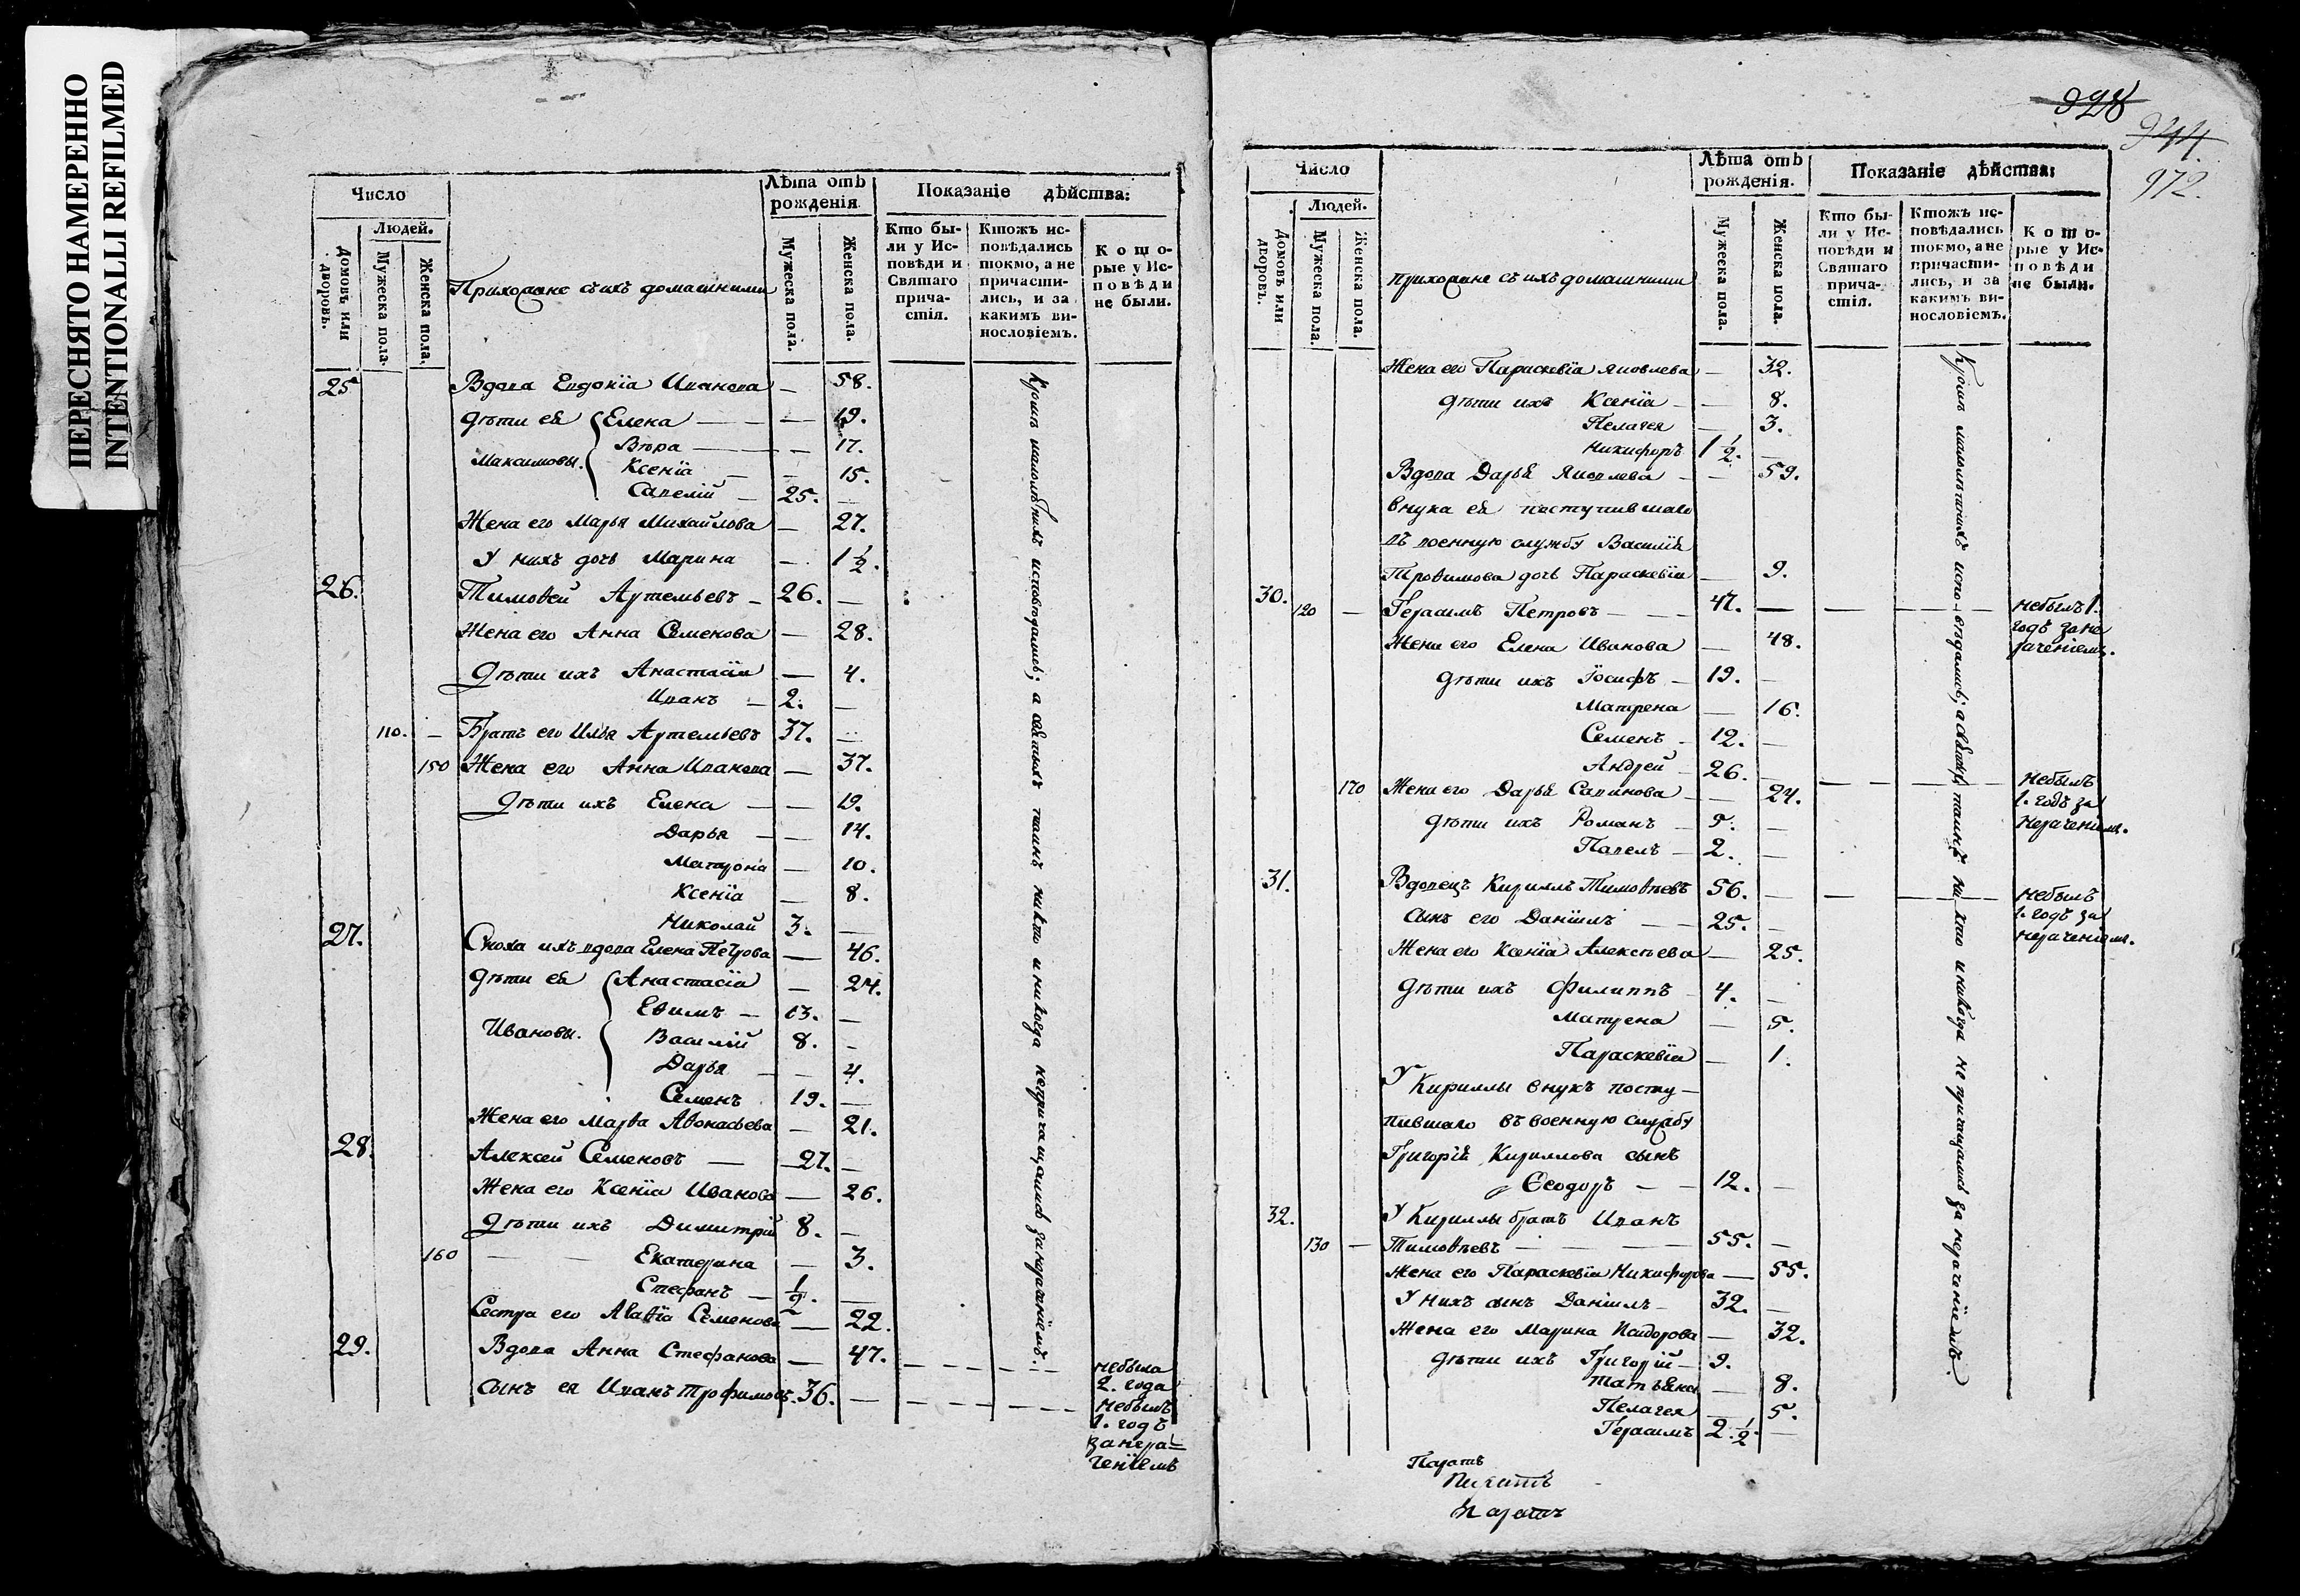 ПЕРЕСНЯТО НАМЕРЕННО
INTENTIONALLI REFILMED
Число
Людей.
Домовъ или дворовъ.
Мужеска пола.
Женска пола.
Прихожане съ ихъ домашними
Лѣта отъ рожденія
Мужеска пола.
Женска пола.
Показаніе дѣйства:
Кто были у Исповѣди и Святаго причастія.
Ктожъ исповѣдались токмо, а не причастились, и за какимъ винословіемъ.
Которые у Исповѣди не были.
25 Вдова Евдокіа Иванова — 58.
Дѣти ея Елена — 19.
Вѣра — 17.
Максимовы. Ксеніа — 15.
Савелій — 25. —
Жена его Марья Михайлова — 27.
У нихъ дочь Марина — 1 1/2.
26. Тимоѳей Артемьевъ — 26. —
Жена его Анна Семенова — 28.
Дѣти ихъ Анастасіа — 4.
Иванъ — 2. —
110. — Братъ его Илья Артемьевъ 37. —
150 Жена его Анна Иванова — 37.
Дѣти ихъ Елена — 19.
Дарья — 14.
Матрона — 10.
Ксеніа — 8.
Николай 3. —
27. Сноха ихъ вдова Елена Петрова — 46.
Дѣти ея Анастасіа — 24.
Евѳимъ — 13. —
Ивановы. Василій 8. —
Дарья — 4.
Семенъ 19. —
Жена его Марѳа Аѳонасьева — 21.
28. Алексей Семеновъ — 27. —
Жена его Ксеніа Иванова — 26.
Дѣти ихъ Димитрій 8. —
160 — — Екатерина — 3.
Стефанъ — 1/2. —
Сестра его Агаѳіа Семенова — 22.
29. Вдова Анна Стефанова — 47. — — — — небыла
2. года
Сынъ ея Иванъ Трофимовъ. 36. — — — — — небылъ
1. годъ
за нера=
ченіемъ
Кромѣ малолѣтнихъ исповѣдались; а святыхъ таинъ никто и никогда непричащались за нераченіемъ.
928
944
972.
Число
Людей.
Домовъ или дворовъ.
Мужеска пола.
Женска пола.
Прихожане съ ихъ домашними
Лѣта отъ рожденія.
Мужеска пола.
Женска пола.
Показаніе дѣйства:
Кто были у Исповѣди и Святаго причастія.
Ктожъ исповѣдались токмо, а не причастились, и за какимъ винословіемъ.
Которые у Исповѣди не были.
Жена его Параскевіа Яковлева — 32.
Дѣти ихъ Ксеніа — 8.
Пелагея — 3.
Никифоръ 1 1/2. —
Вдова Дарья Яковлева — 59.
Внука ея поступившаго
въ военную службу Василія
Троѳимова дочь Параскевіа — 9.
30. 120 — Герасимъ Петровъ — 47. — — — — небылъ 1.
годъ за не
раченіемъ.
Жена его Елена Иванова — 48.
Дѣти ихъ Іосифъ — 19. —
Матрена — 16.
Семенъ — 12. —
Андрей — 26. — — — — небылъ
1. годъ за
нераченіемъ.
170 Жена его Дарья Савинова — 24.
Дѣти ихъ Романъ — 5. —
Павелъ — 2. —
31. Вдовецъ Кириллъ Тимоѳеевъ 56. — — — — небылъ
1. годъ за
нераченіемъ.
Сынъ его Даніилъ — 25. —
Жена его Ксеніа Алексѣева — 25.
Дѣти ихъ Филиппъ 4. —
Матрена — 5.
Параскевіа — 1.
У Кириллы внукъ посту—
пившаго въ военную службу
Григорія Кириллова сынъ
Ѳеодоръ — 12. —
32. У Кириллы братъ Иванъ
130 — Тимоѳеевъ — 55. —
Жена его Параскевіа Никифорова — 55.
У нихъ сынъ Даніилъ — 32. —
Жена его Марина Исидорова — 32.
Дѣти ихъ Григорій — 9.
Татьяна — 8.
Пелагея — 5.
Герасимъ 2. 1/2. —
Кромѣ малолѣтнихъ исповѣдались; а святыхъ таинъ никто и никогда не причащались за нераченіемъ.